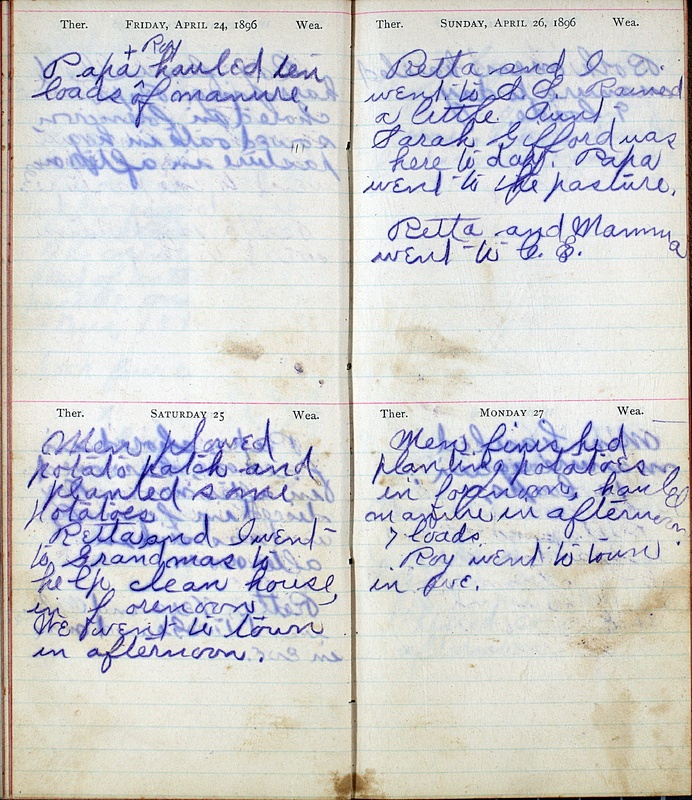 Ther. FRIDAY, APRIL 24, 1896 Wea.
+ Roy
Papa hauled ten
loads of manure.
Ther. SATURDAY 25 Wea.
Men plowed
potato patch and
planted some
potatoes
Retta and I went
to Grandmas to
help clean house,
in forenoon.
We went to town
in afternoon.
Ther. SUNDAY, APRIL 26, 1896 Wea.
Retta and I
went to S. S. Rained
a little Aunt
Sarah Gifford was
here to day. Papa
went to the pasture.
Retta and Mamma
went to C. E.
Ther. MONDAY 27 Wea.
Men finished
planting potatoes
in forenoon, hauled
manure in afternoon.
7 loads.
Roy went to town
in eve.